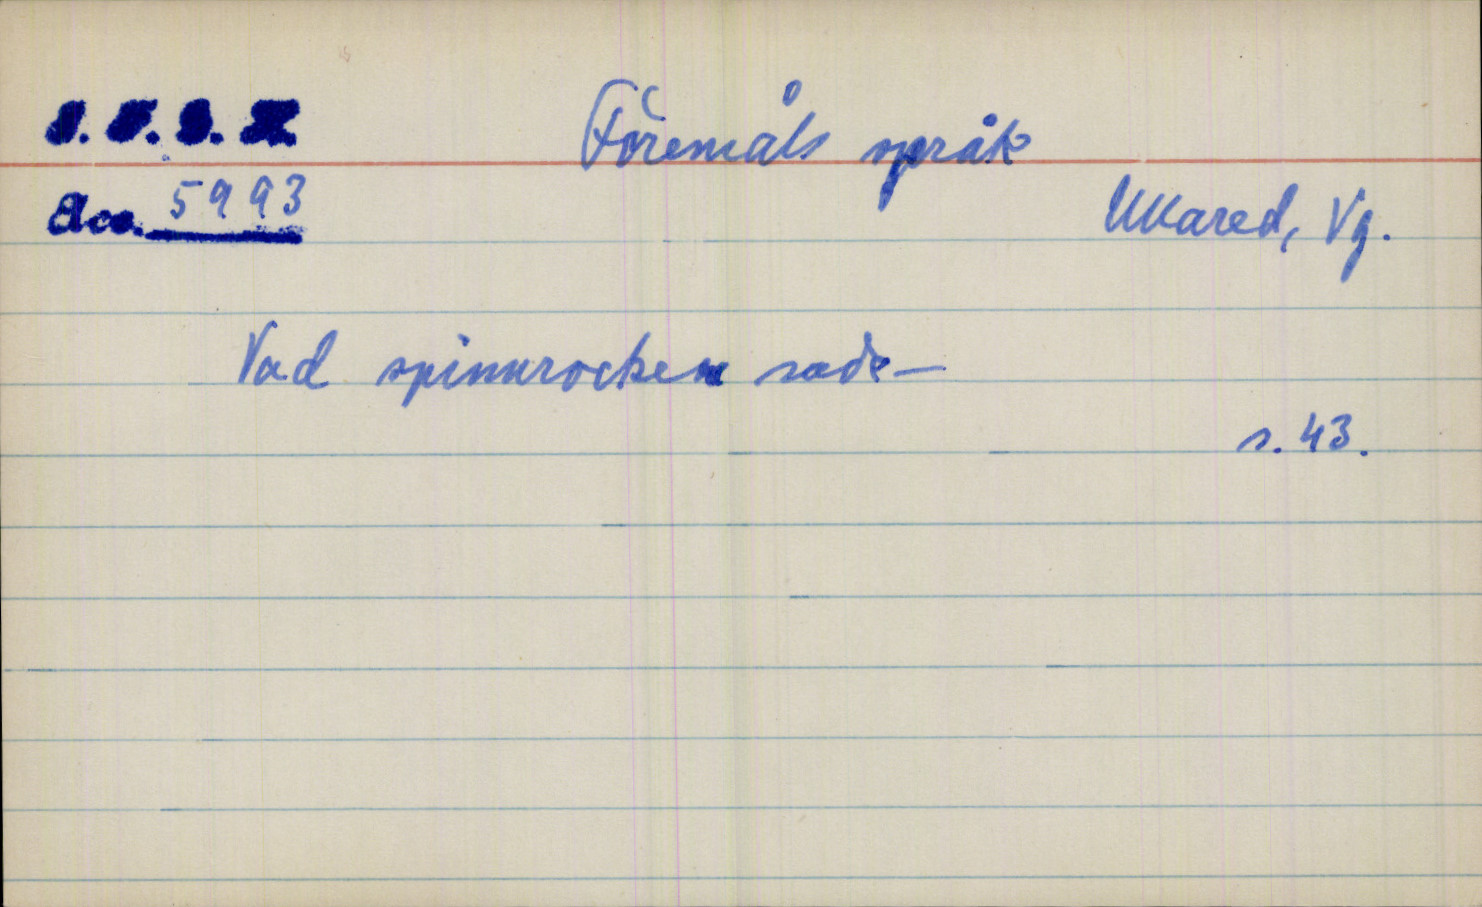 Föremåls språk
Acc. 5993
Ullared, Vg.
Vad spinnrocken sade—
s. 43.